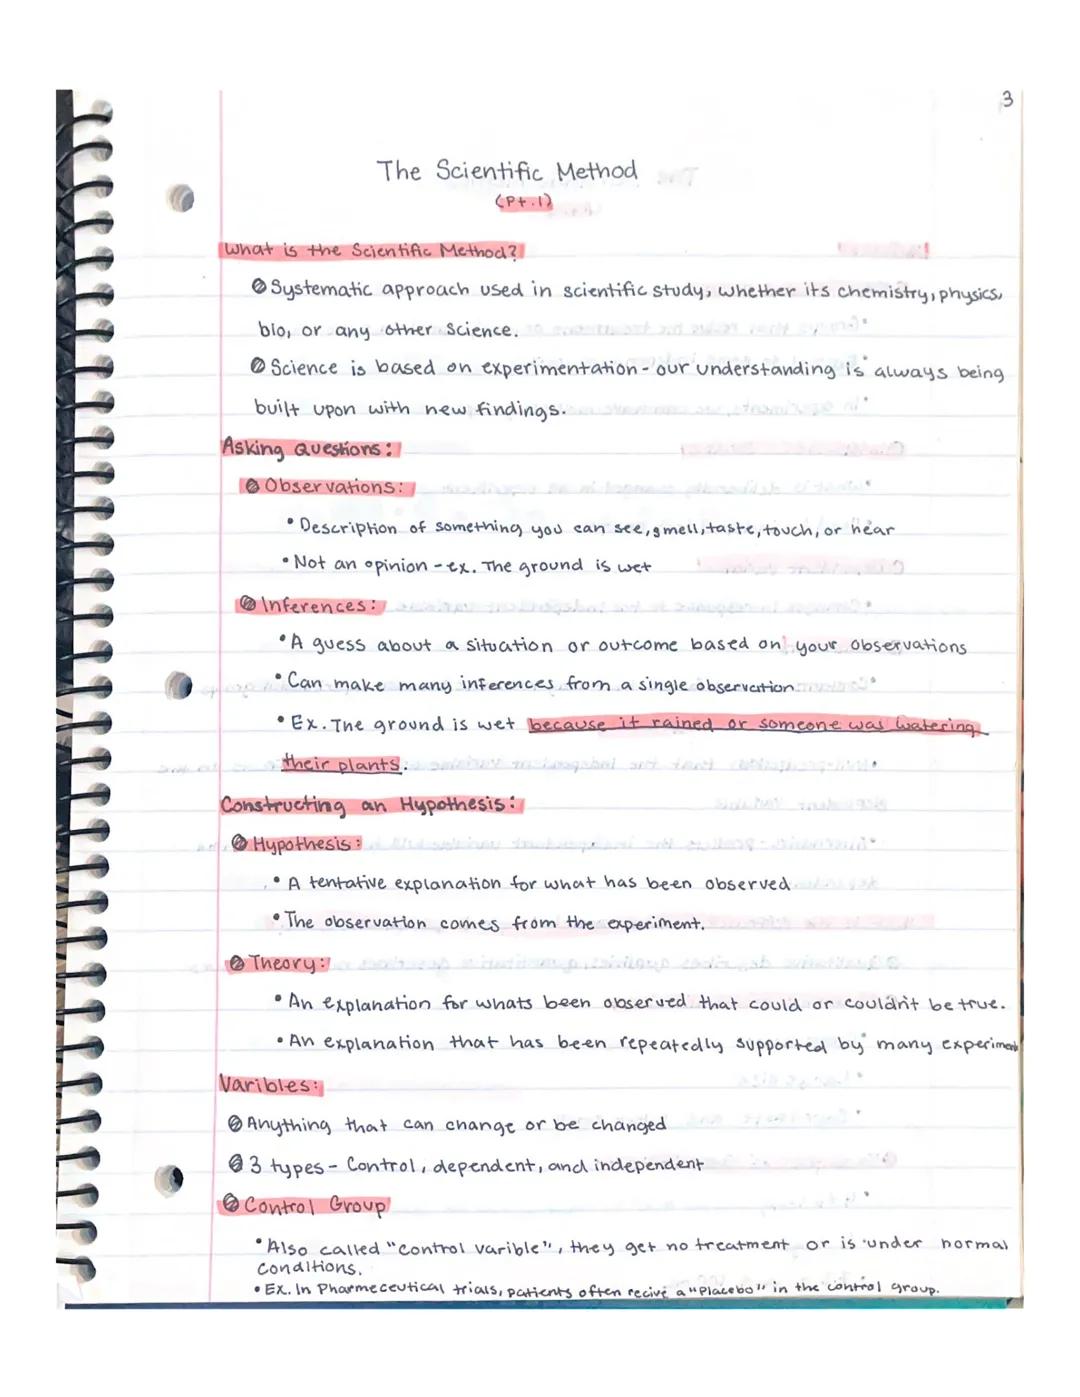 3
The Scientific Method
(Pt.1)
What is the Scientific Method?
Systematic approach used in scientific study, whether its chemistry, physics,
bio, or any other science.
Science is based on experimentation - our understanding is always being
built upon with new findings.
Asking Questions:
Observations:
• Description of something you can see, smell, taste, touch, or hear
• Not an opinion - ex. The ground is wet
Inferences:
• A guess about a situation or outcome based on your observations
• Can make many inferences from a single observation
• Ex. The ground is wet because it rained or someone was watering
their plants.
Constructing an Hypothesis:
Hypothesis:
• A tentative explanation for what has been observed
• The observation comes from the experiment.
Theory:
• An explanation for whats been observed that could or couldn't be true.
• An explanation that has been repeatedly supported by many experiment
Varibles:
Anything that can change or be changed
3 types - Control, dependent, and independent
Control Group
• Also called "control varible", they get no treatment or is under normal
conditions.
• Ex. In Pharmeceutical trials, patients often recive a "Placebo" in the control group.